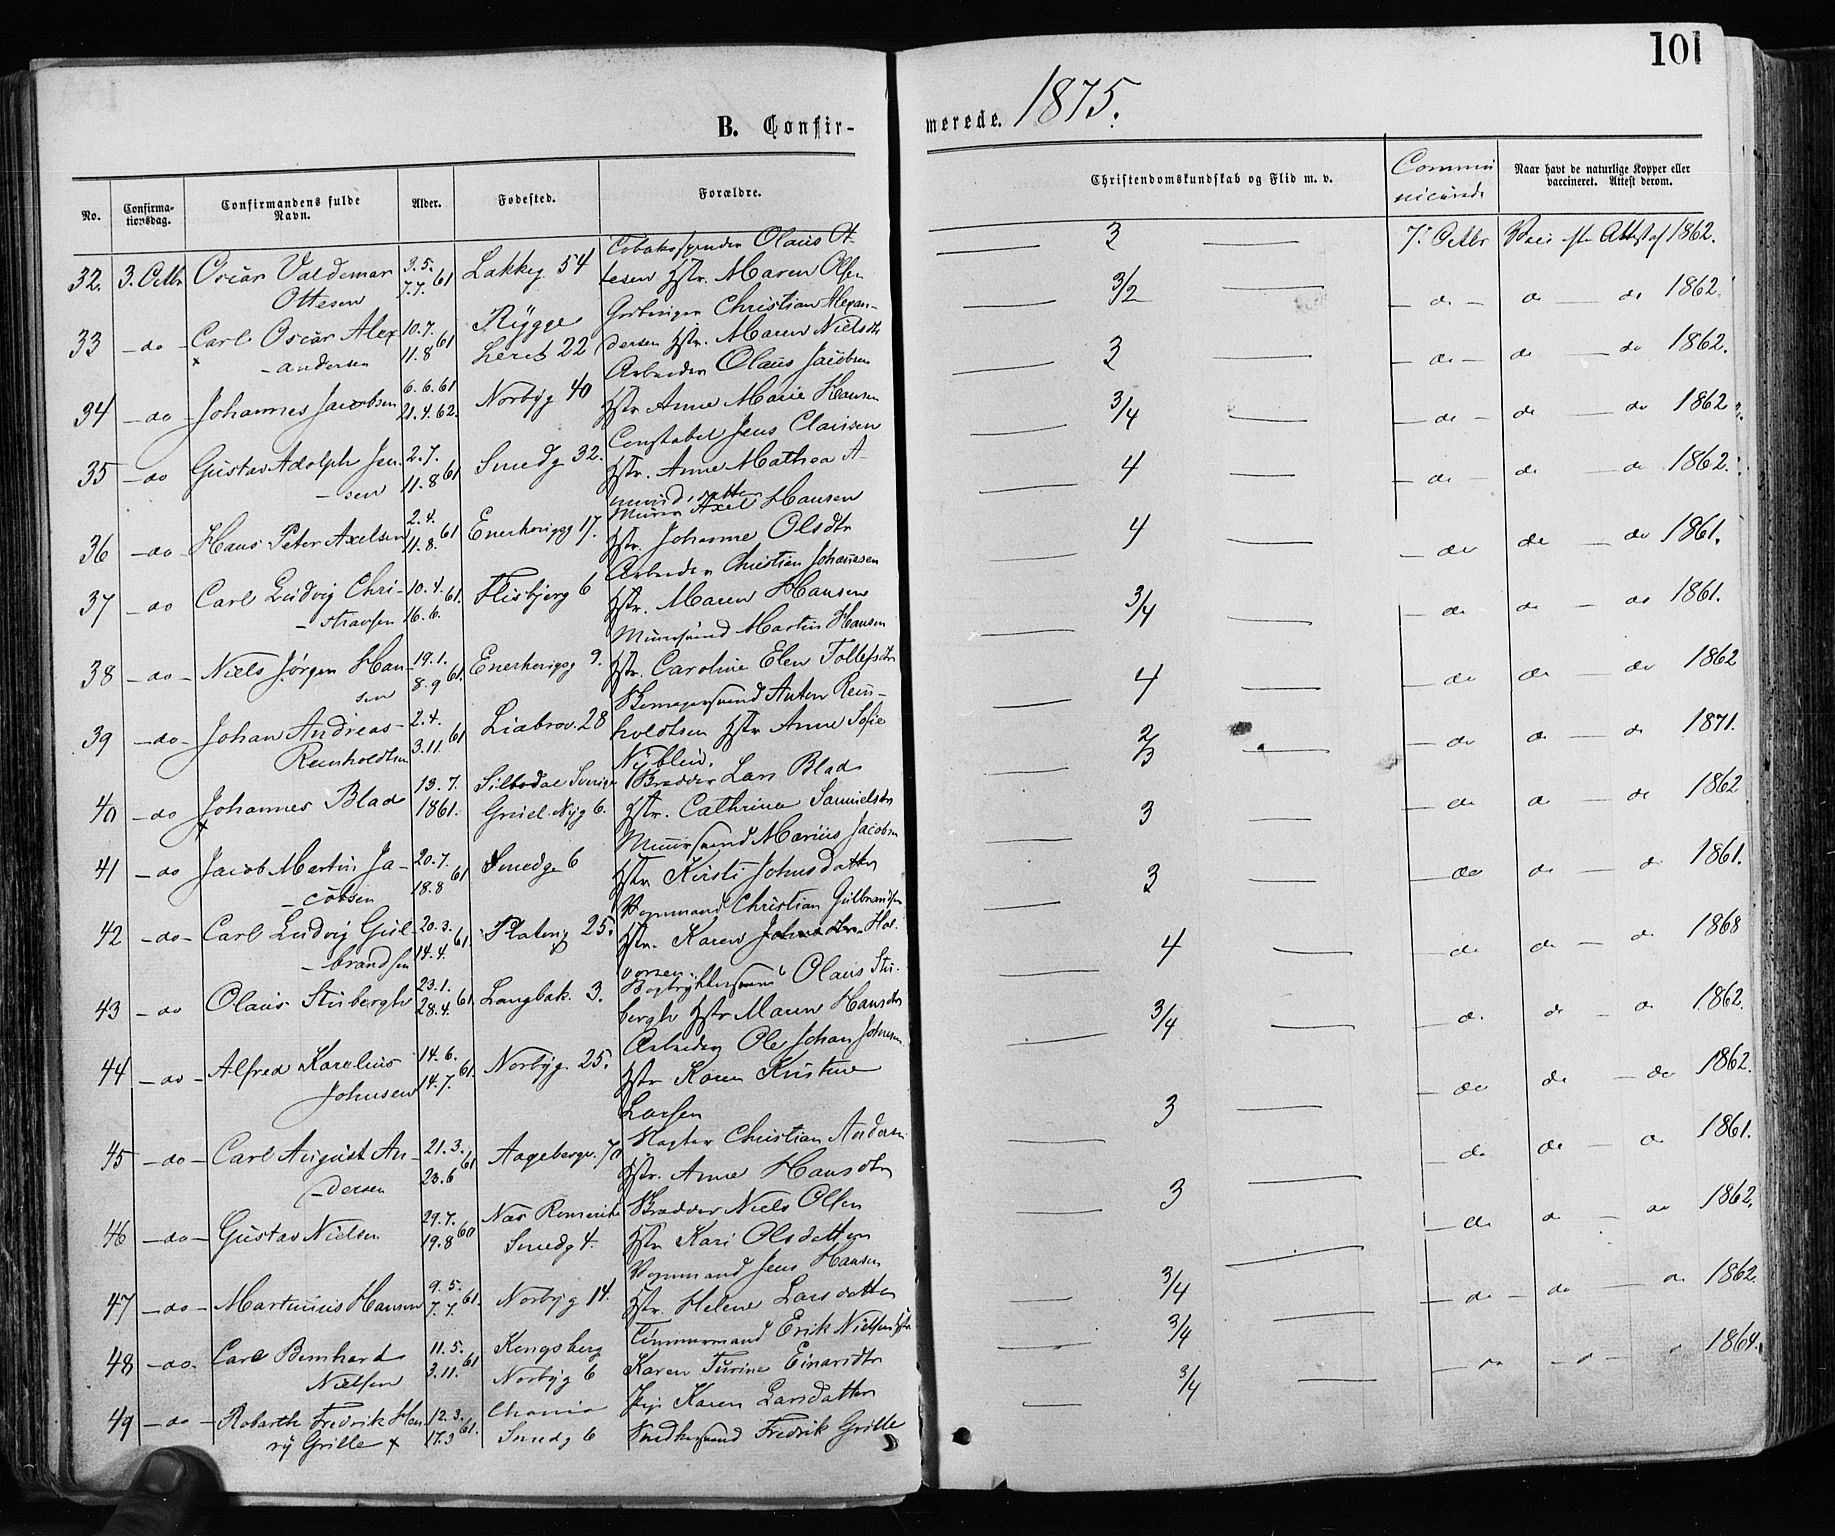 101
B. Confir-
merede. 1875.
No.
Confirma-
tionsdag.
Confirmandens fulde
Navn.
Alder.
Fødested.
Forældre.
Christendomskundskab og Flid m. v.
Communicerede
Naar havt de naturlige Kopper eller
vaccineret. Attest derom.
32. 3. Octbr Oscar Valdemar Ottesen 3.5. 7.7. 61 Lakkeg 54 Olaus Ottesen Hstr. Maren Olsen 3 7. Octbr Attest af 1862.
33 -do- Carl Oscar Alexandersen 10.7. 11.8 61 Rygge Leret 22 Christian Alexandersen Hstr. Maren Nielsdtr 3/2 -do- do - do 1862.
34 -do- Johannes Jacobsen 6.6.61 21.4.62. Norbyg 40 Arbeider Olaus Jacobsen Hstr Anne Marie Hansen 3 -do- do - do 1862.
35 -do Gustav Adolph Jensen 2.7. 11.8 61 Smedg 32. Constabel Jens Clausen Hstr. Anne Mathea Amundsdatter 3/4 -do- do - do 1862
36 -do Hans Peter Axelsen 2.4. 11.8. 61 Enerhougsg 17. Murer Axel Hansen Hstr. Johanne Olsdtr 4 -do- do - do 1862.
37 -do Carl Ludvig Christiansen 10.4. 16.6. 61. Flisbjerg 6 Arbeider Christian Johannesen Hstr. Maren Hansen 4 -do do - do 1861.
38 -do- Niels Jørgen Hansen 19.1. 8.9 61. Enerhougsg 9. Muursvend Martin Hansen Hstr. Caroline Elen Tollefsdtr 3/4 -do do - do 1861.
39 -do- Johan Andreas Reinholdtsen 2.4. 3.11 61 Liabrov. 28 Anton Reinholdtsen Hstr Anne Sofie 4 -do do - do 1862
40 -do Johannes Blad 13.7. 1861. Silbodal Sverige Grüel. Nyg 6. Lars Blad Hstr. Cathrina Samuelsdtr 2/3 -do do - do 1871.
41 -do Jacob Martin Jacobsen 20.7. 18.8 61 Smedg 6 Muursvend Marius Jacobsen Hstr Kirsti Johnsdatter 3 -do do - do 1862
42 -do- Carl Ludvig Gulbrandsen 20.3. 14.4. 61 Platoug 25. Vognmand Christian Gulbrandsen Hstr. Karen Halvorsen. 3 -do do - do 1861.
43 -do Olaus Stubergh 23.1. 28.4. 61. Langbak. 3. Bogtrykkersvend Olaus Stubergh Hstr Maren Hansdtr 4 -do do - do 1868
44 -do- Alfred Karelius Johnsen 14.6. 14.7. 61. Norbyg. 25. Arbeider Ole Johan Johnsen Hstr Karen Kristine Larsen 3/4 -do do - do 1862.
45 -do- Carl August Andersen 21.3. 23.6 61 Aagebergv. 70 Christian Andersen Hstr. Anne Hansdtr 3 -do do - do 1862.
46 -do- Gustav Nielsen 29.7. 19.8 60 Næs Romerike Smedg 4. Niels Olsen Hstr Kari Olsdatter 3 -do do - do 1861.
47 -do- Martinius Hansen 9.5. 7.7. 61. Norbyg 14. Vognmand Jens Hansen Hstr. Helene Larsdatter 3/4 -do do - do 1862.
48 -do. Carl Bernhard Nielsen 11.5. 3.11. 61 Kongsberg Norbyg 6 Tømmermand Erik Nielsen Hstr Karen Turine Einarsdtr 3/4 -do- do - do 1862.
49 -do- Robarth Fredrik Henry Grille 12.3. 17.3 61. Chania Smedg 6 Pige Karen Larsdatter Snedkersvend Fredrik Grille 3/4 -do -do- do 1864.